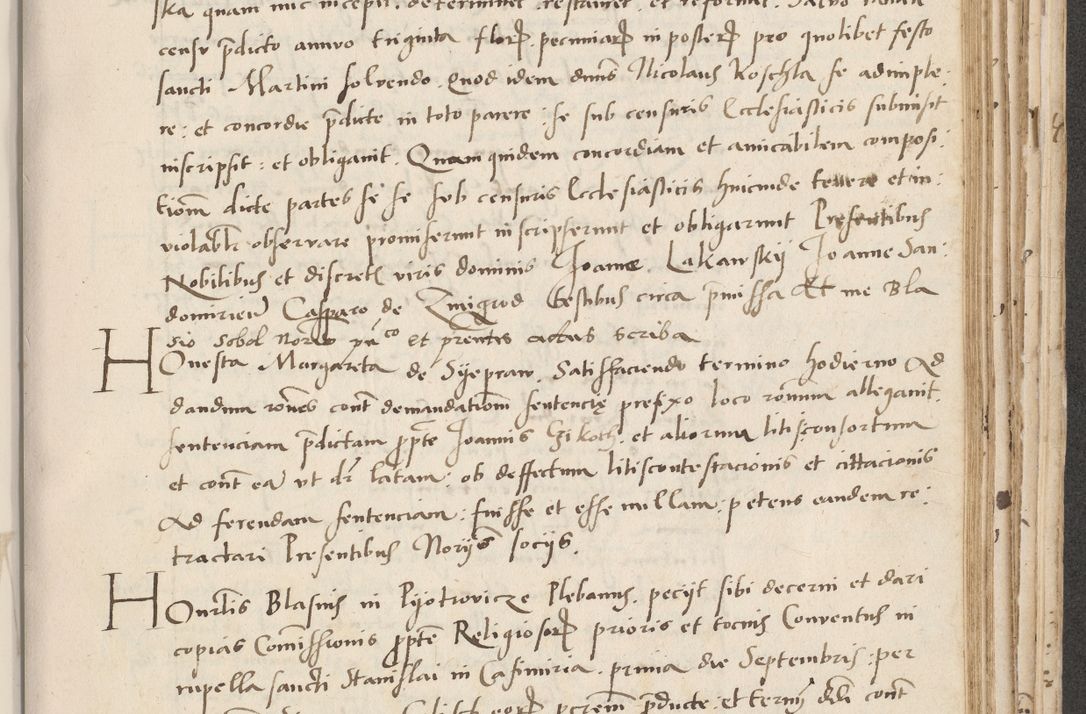 ska quam nunc incepit, determinet, restauret, et reformet. Salvo tamen
censu pdicto annuo triginta flor pecuniar in poster pro quolibet festo
sancti Martini solvendo. Quod idem dnus Nicolaus Koschla se adimple:
re: et concordie pdicte in toto parere: se sub censuris Ecclesiasticis submisit
inscripsit: et obligavit. Quam quidem concordiam et amicabilem composi:
tionem dicte partes se se sub censuris Ecclesiasticis huiusmode tenere et in:
violabir observare promiserunt inscripserunt et obligarunt Presentibus
Nobilibus et discretis viris dominis Joanne Lakawskij Joanne San:
domirien Casparo de Zmigrod testibus circa pmissa Et me Bla
sio Sobol Norio puco et pntis actus scriba
Honesta Margareta de Syepraw. Satisfaciendo termino hodierno Ad
dandum rones cont demandationem sentencie prefixo loco ronum allegavit.
sentenciam pdictam ppte Joannis Gikoth. et aliorum litisconsortum
et cont ea ut dr latam: ob deffectum litiscontestacionis et cittacionis
Ad ferendam sentenciam: fuisse et esse nullam: petens eandem re:
tractari Presentibus Norijs socijs.
Honrlis Blasius in Pijotrovicze Plebanus. pecijt sibi decerni et dari
copias Comissionis ppte Religiosor prioris et tocius Conventus in
rupella sancti Stanislai in Casimiria. prima die Septembris: per
pducte: et termi cont